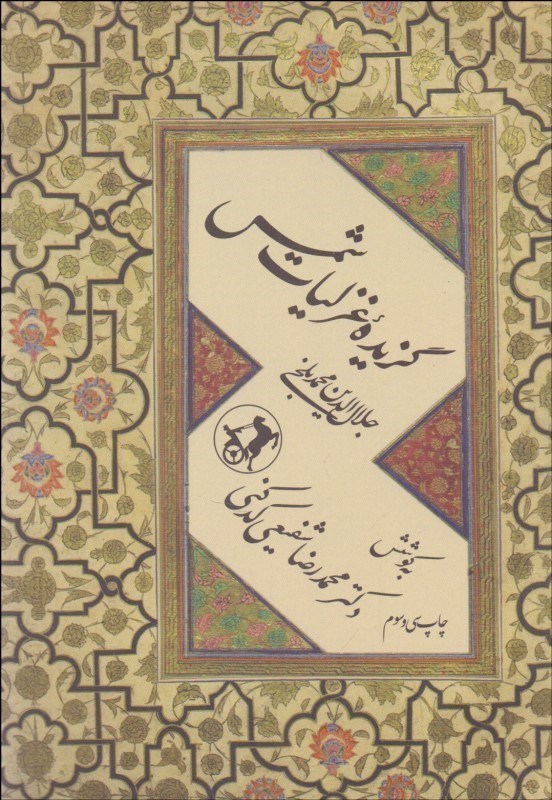 گزیدهٔ غزلیات شمس
جلال‌الدین محمد بلخی
به کوشش
دکتر محمدرضا شفیعی کدکنی
چاپ سی و سوم